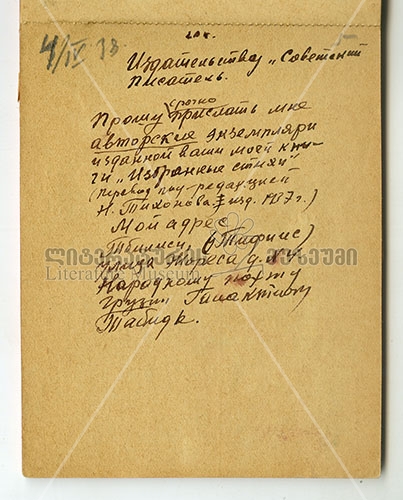 4/IV 38
Издательству „Советский
писатель.
срочно
Прошу прислать мне
авторские экземпляри
изданной вами моей кни-
ги „Избранные стихи"
(перевод под редакцией
Н. Тихонова. изд. 1937 г.)
Мой адрес
Тбилиси, (Тифлис)
ლიტერატურის მუზეუმი
улица
Literature Museum
Народному поэту
Грузии Галактиону
Табидзе.